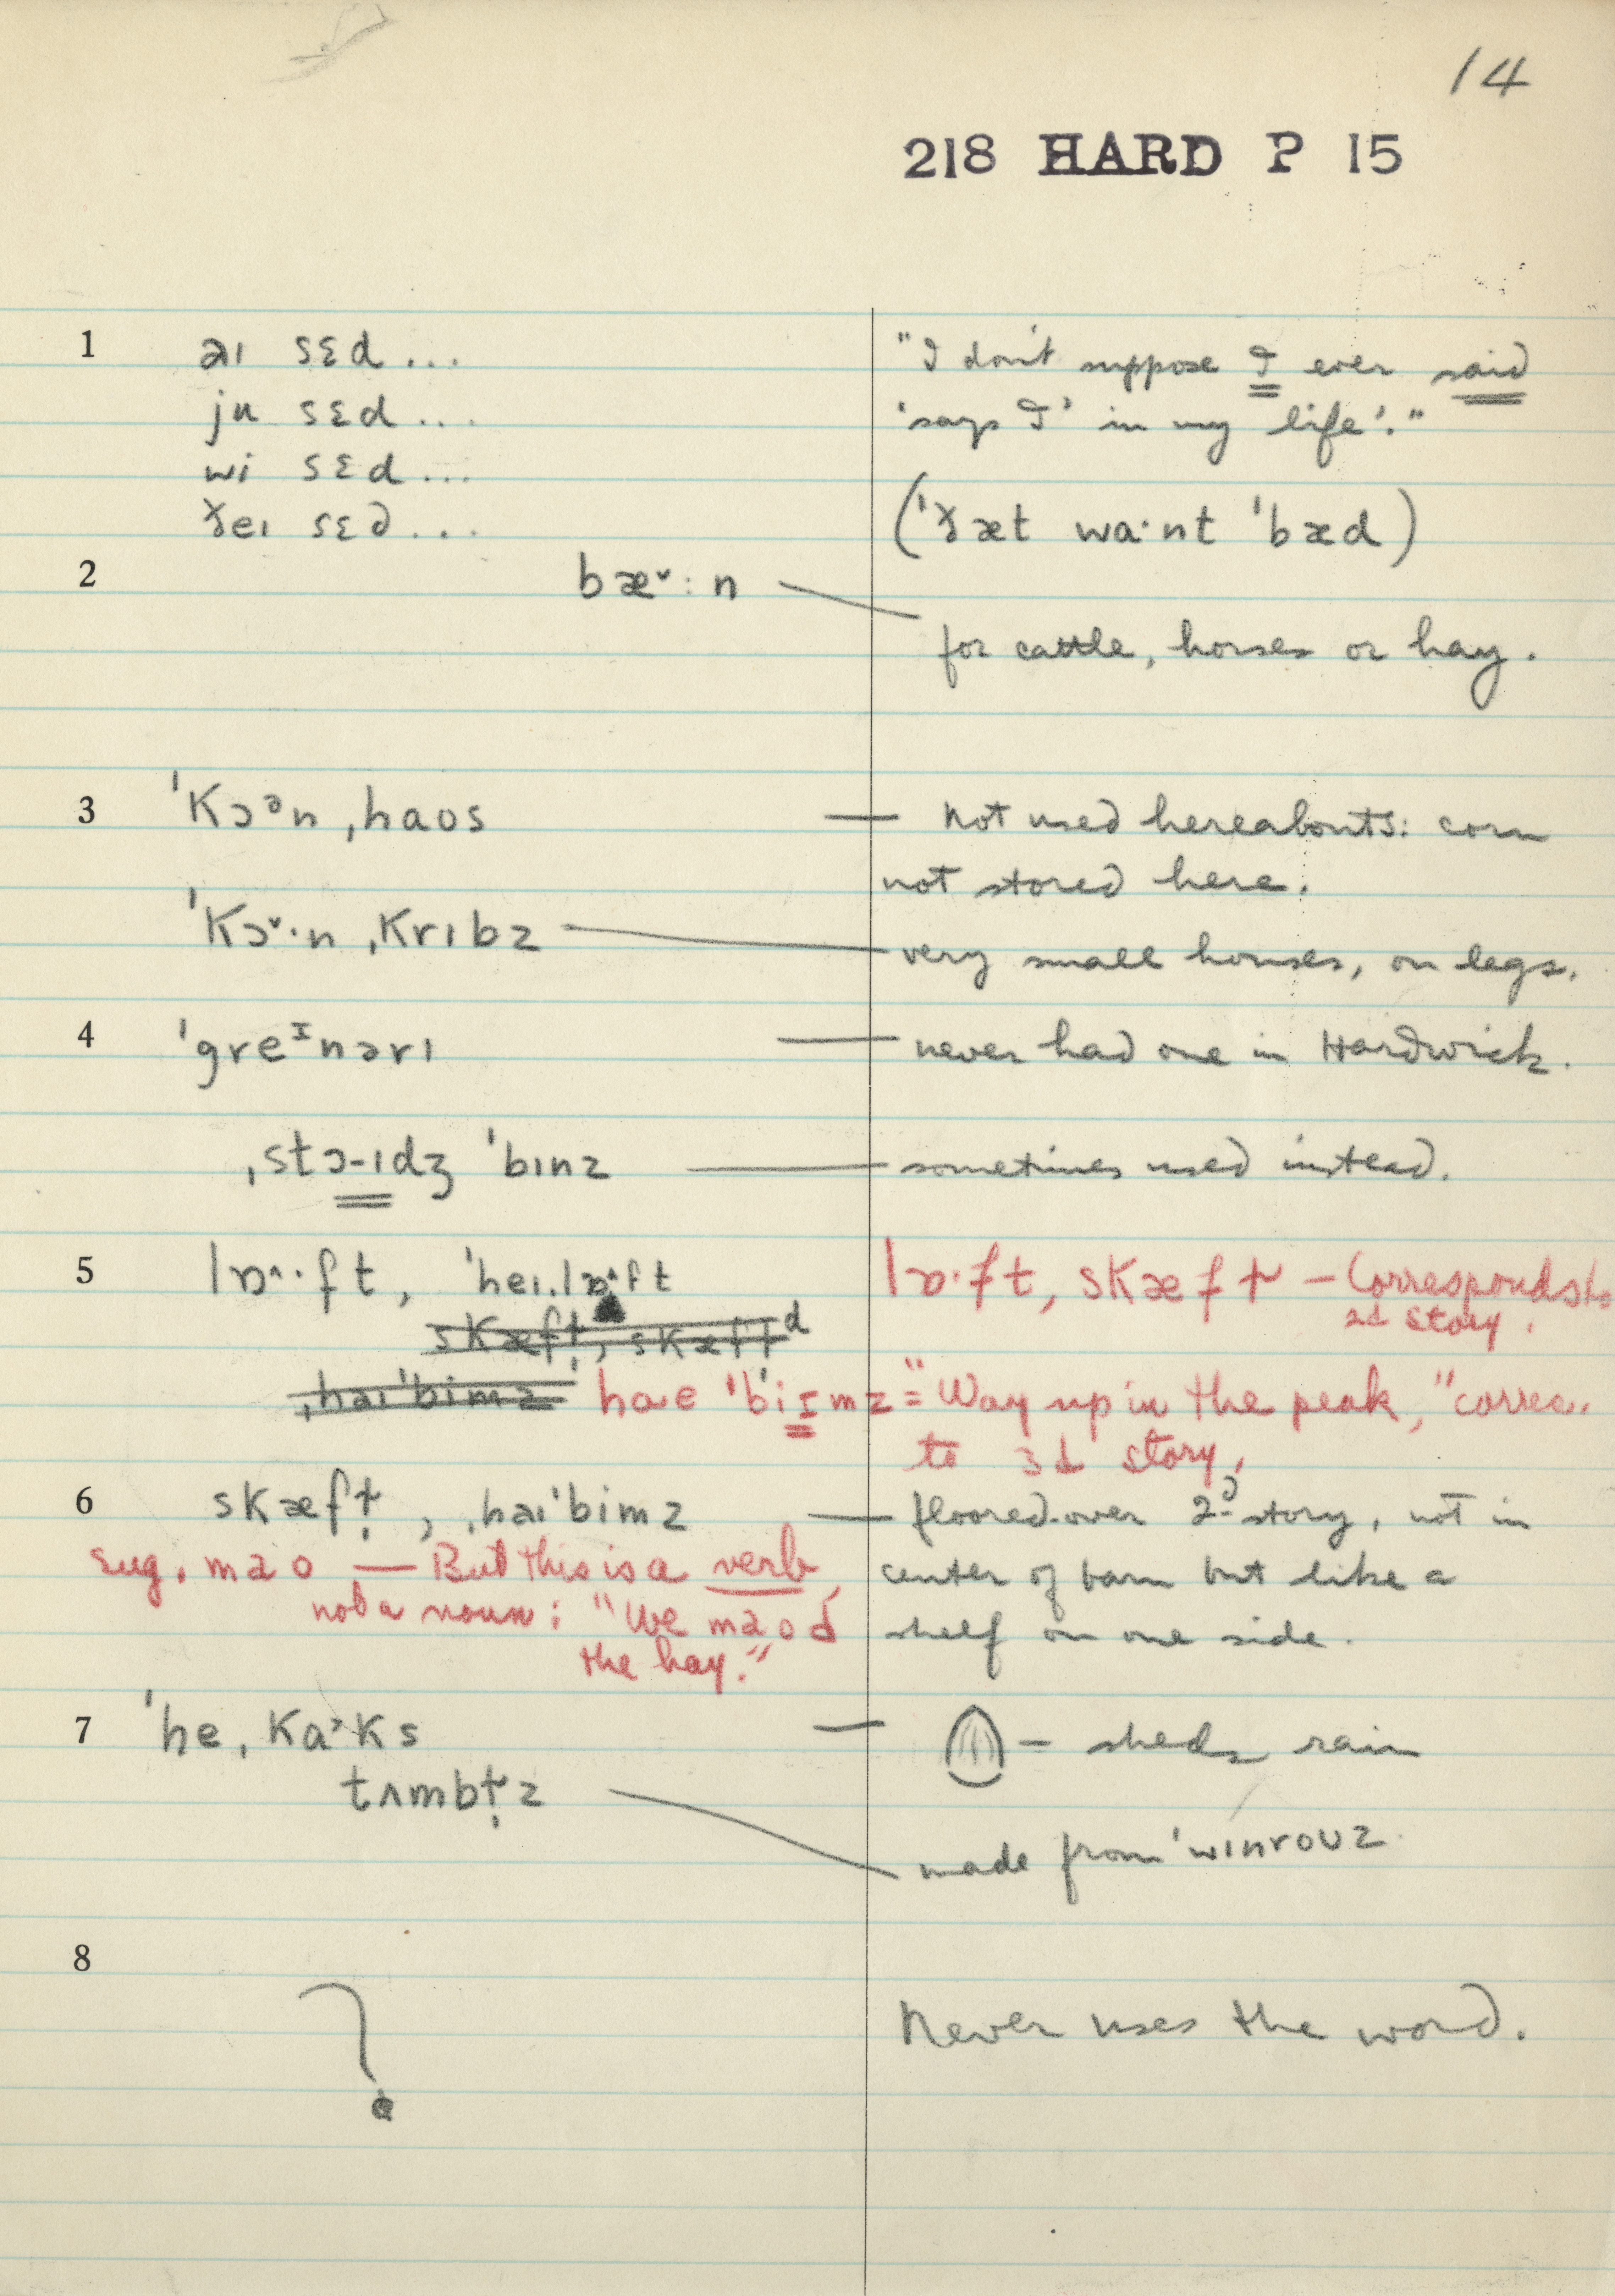 14
218 HARD P 15
1 aı sɛd... "I don't suppose I ever said
ju sɛd.... 'says I' in my life'."
wi sɛd...
ðeı sɛd... ('ðæt wa·nt 'bæd)
2 bæ˅:n —
for cattle, horses or hay.
3 'Kɔᵊn ˌhaʊs — Not used hereabouts: corn
not stored here.
'Kɔ˅·n ˌKrıbz — very small houses, on legs.
4 'greᶦnərı — never had one in Hardwick.
ˌstɔ-ıdʒ 'bınz — sometimes used instead.
5 lɒ^·ft, 'heıˌlɒ^ft lɒ·ft, sKæfɫ — Corresponds to
2d story.
sKæfɫ̩, sKæfɫd
ˌhaı'bimz haɛ 'biɪmz = "Way up in the peak," corres.
to 3d story,
6 sKæfɫ̩, ˌhaı'bimz — floored-over 2d story, not in
sug. maʊ — But this is a verb, center of barn but like a
not a noun: "We maʊd shelf on one side.
the hay."
7 'heˌKa˃Ks — — sheds rain
tʌmbɫ̩z — made from 'wınroʊz
8
? Never uses the word.